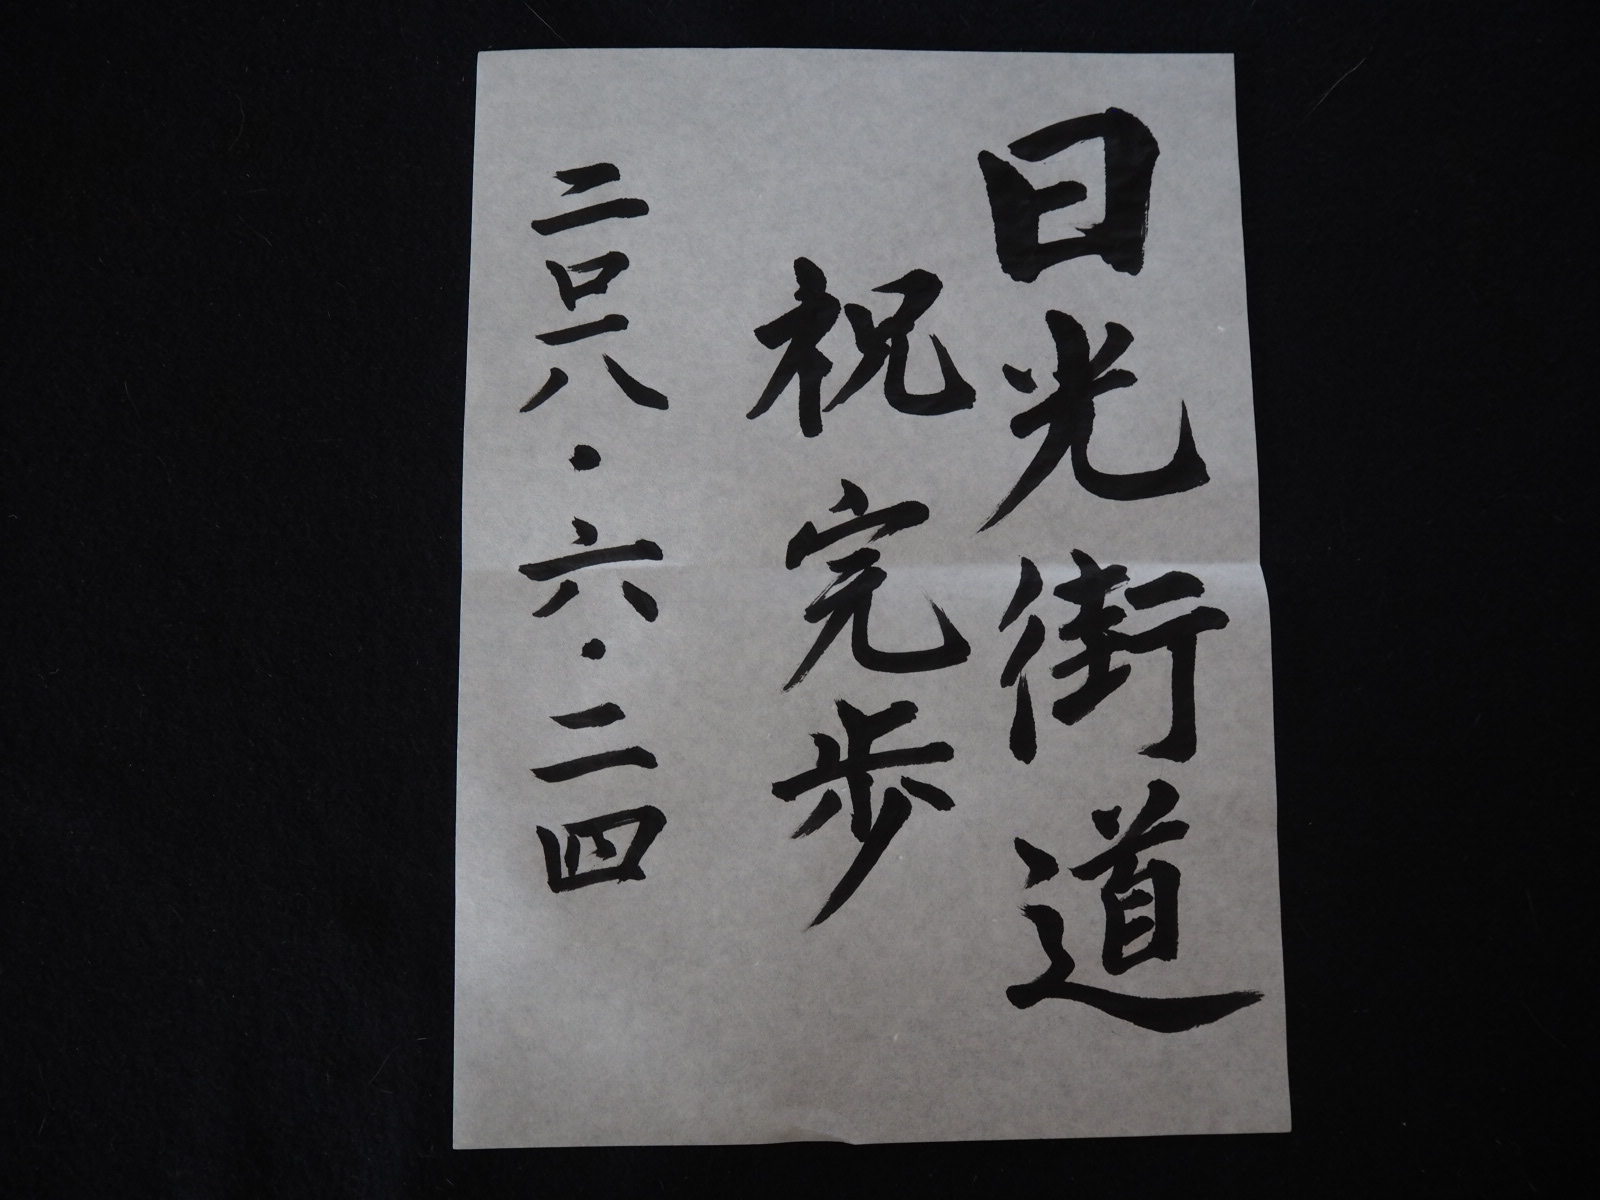 日光街道
祝完歩
二〇一八・六・二四